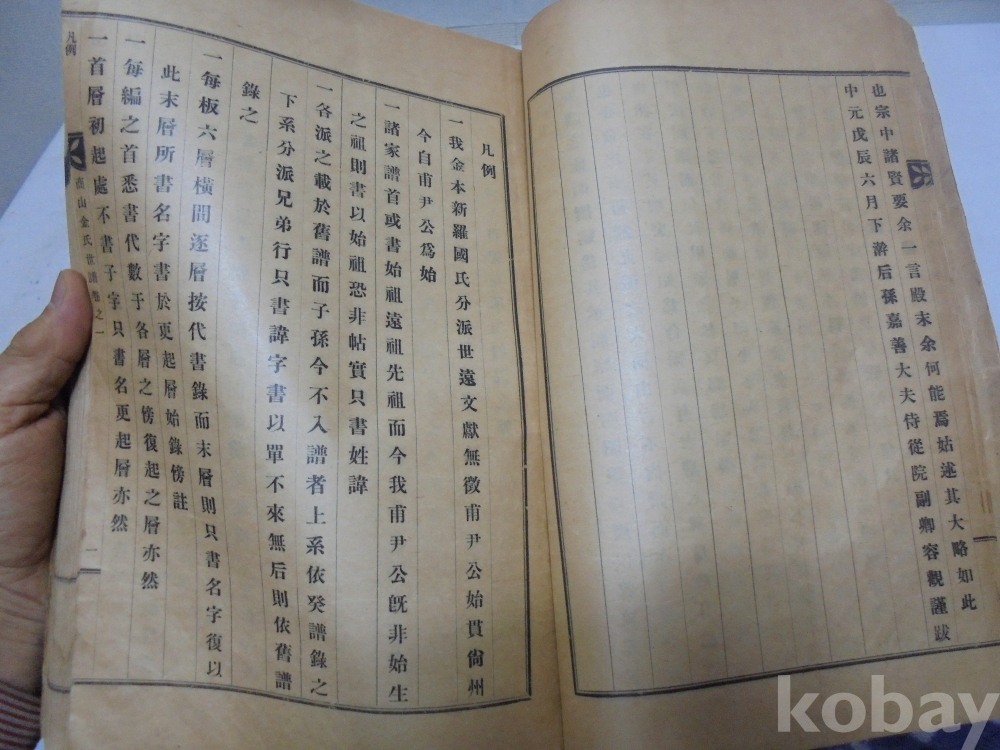 也宗中諸賢要余一言殿末余何能焉姑述其大略如此
中元戊辰六月下澣后孫嘉善大夫侍從院副卿容觀謹跋
凡例
一我金本新羅國氏分派世遠文獻無徵甫尹公始貫尙州
今自甫尹公爲始
一諸家譜首或書始祖遠祖先祖而今我甫尹公旣非始生
之祖則書以始祖恐非帖實只書姓諱
一各派之載於舊譜而子孫今不入譜者上系依癸譜錄之
下系分派兄弟行只書諱字書以單不來無后則依舊譜
錄之
一每板六層橫間逐層按代書錄而末層則只書名字復以
此末層所書名字書於更起層始錄傍註
一每編之首悉書代數于各層之傍復起之層亦然
一首層初起處不書子字只書名更起層亦然
凡例
山金氏世譜卷之一
一
kobay